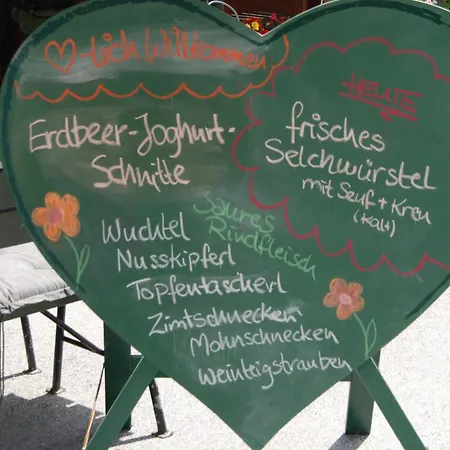 ♡-lich Willkommen
Erdbeer-Joghurt-
Schnitte
HEUTE
frisches
Selchwürstel
mit Senf + Kren
(Kalt)
Saures
Rindfleisch
Wuchtel
Nusskipferl
Topfentascherl
Zimtschnecken
Mohnschnecken
Weinteigstrauben